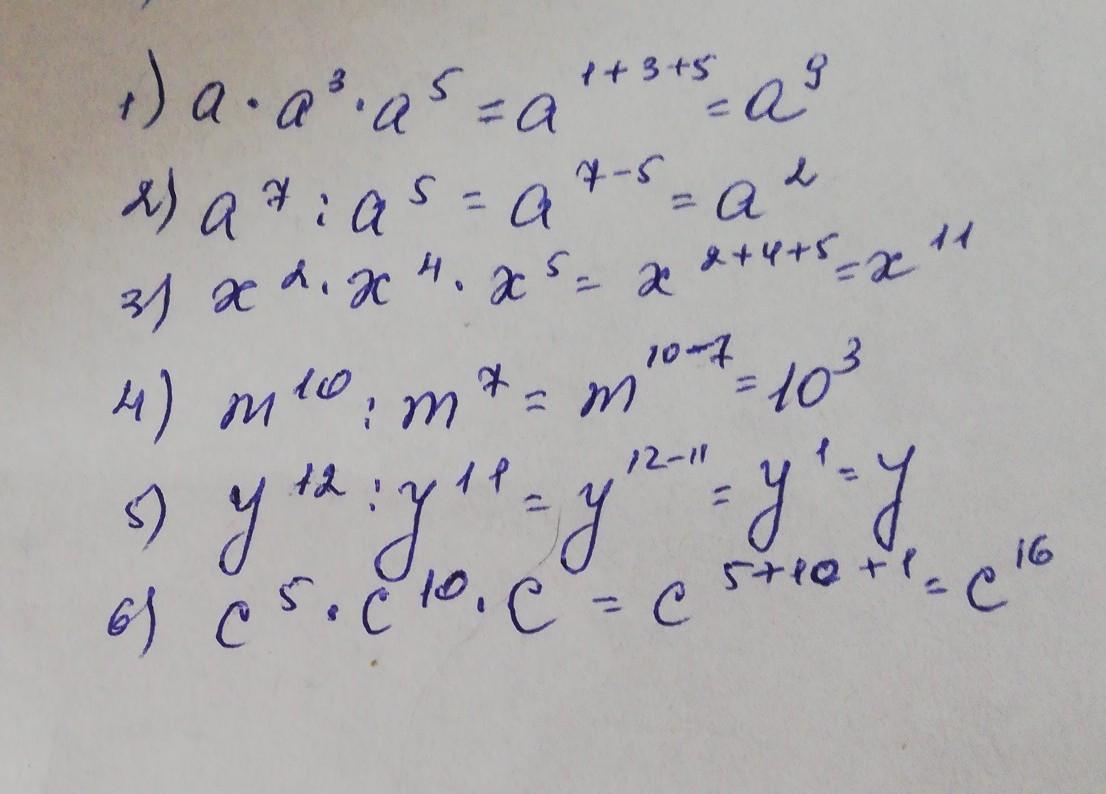 1) a · a³ · a⁵ = a¹⁺³⁺⁵ = a⁹
2) a⁷ : a⁵ = a⁷⁻⁵ = a²
3) x² · x⁴ · x⁵ = x²⁺⁴⁺⁵ = x¹¹
4) m¹⁰ : m⁷ = m¹⁰⁻⁷ = 10³
5) y¹² : y¹¹ = y¹²⁻¹¹ = y¹ = y
6) c⁵ · c¹⁰ · c = c⁵⁺¹⁰⁺¹ = c¹⁶